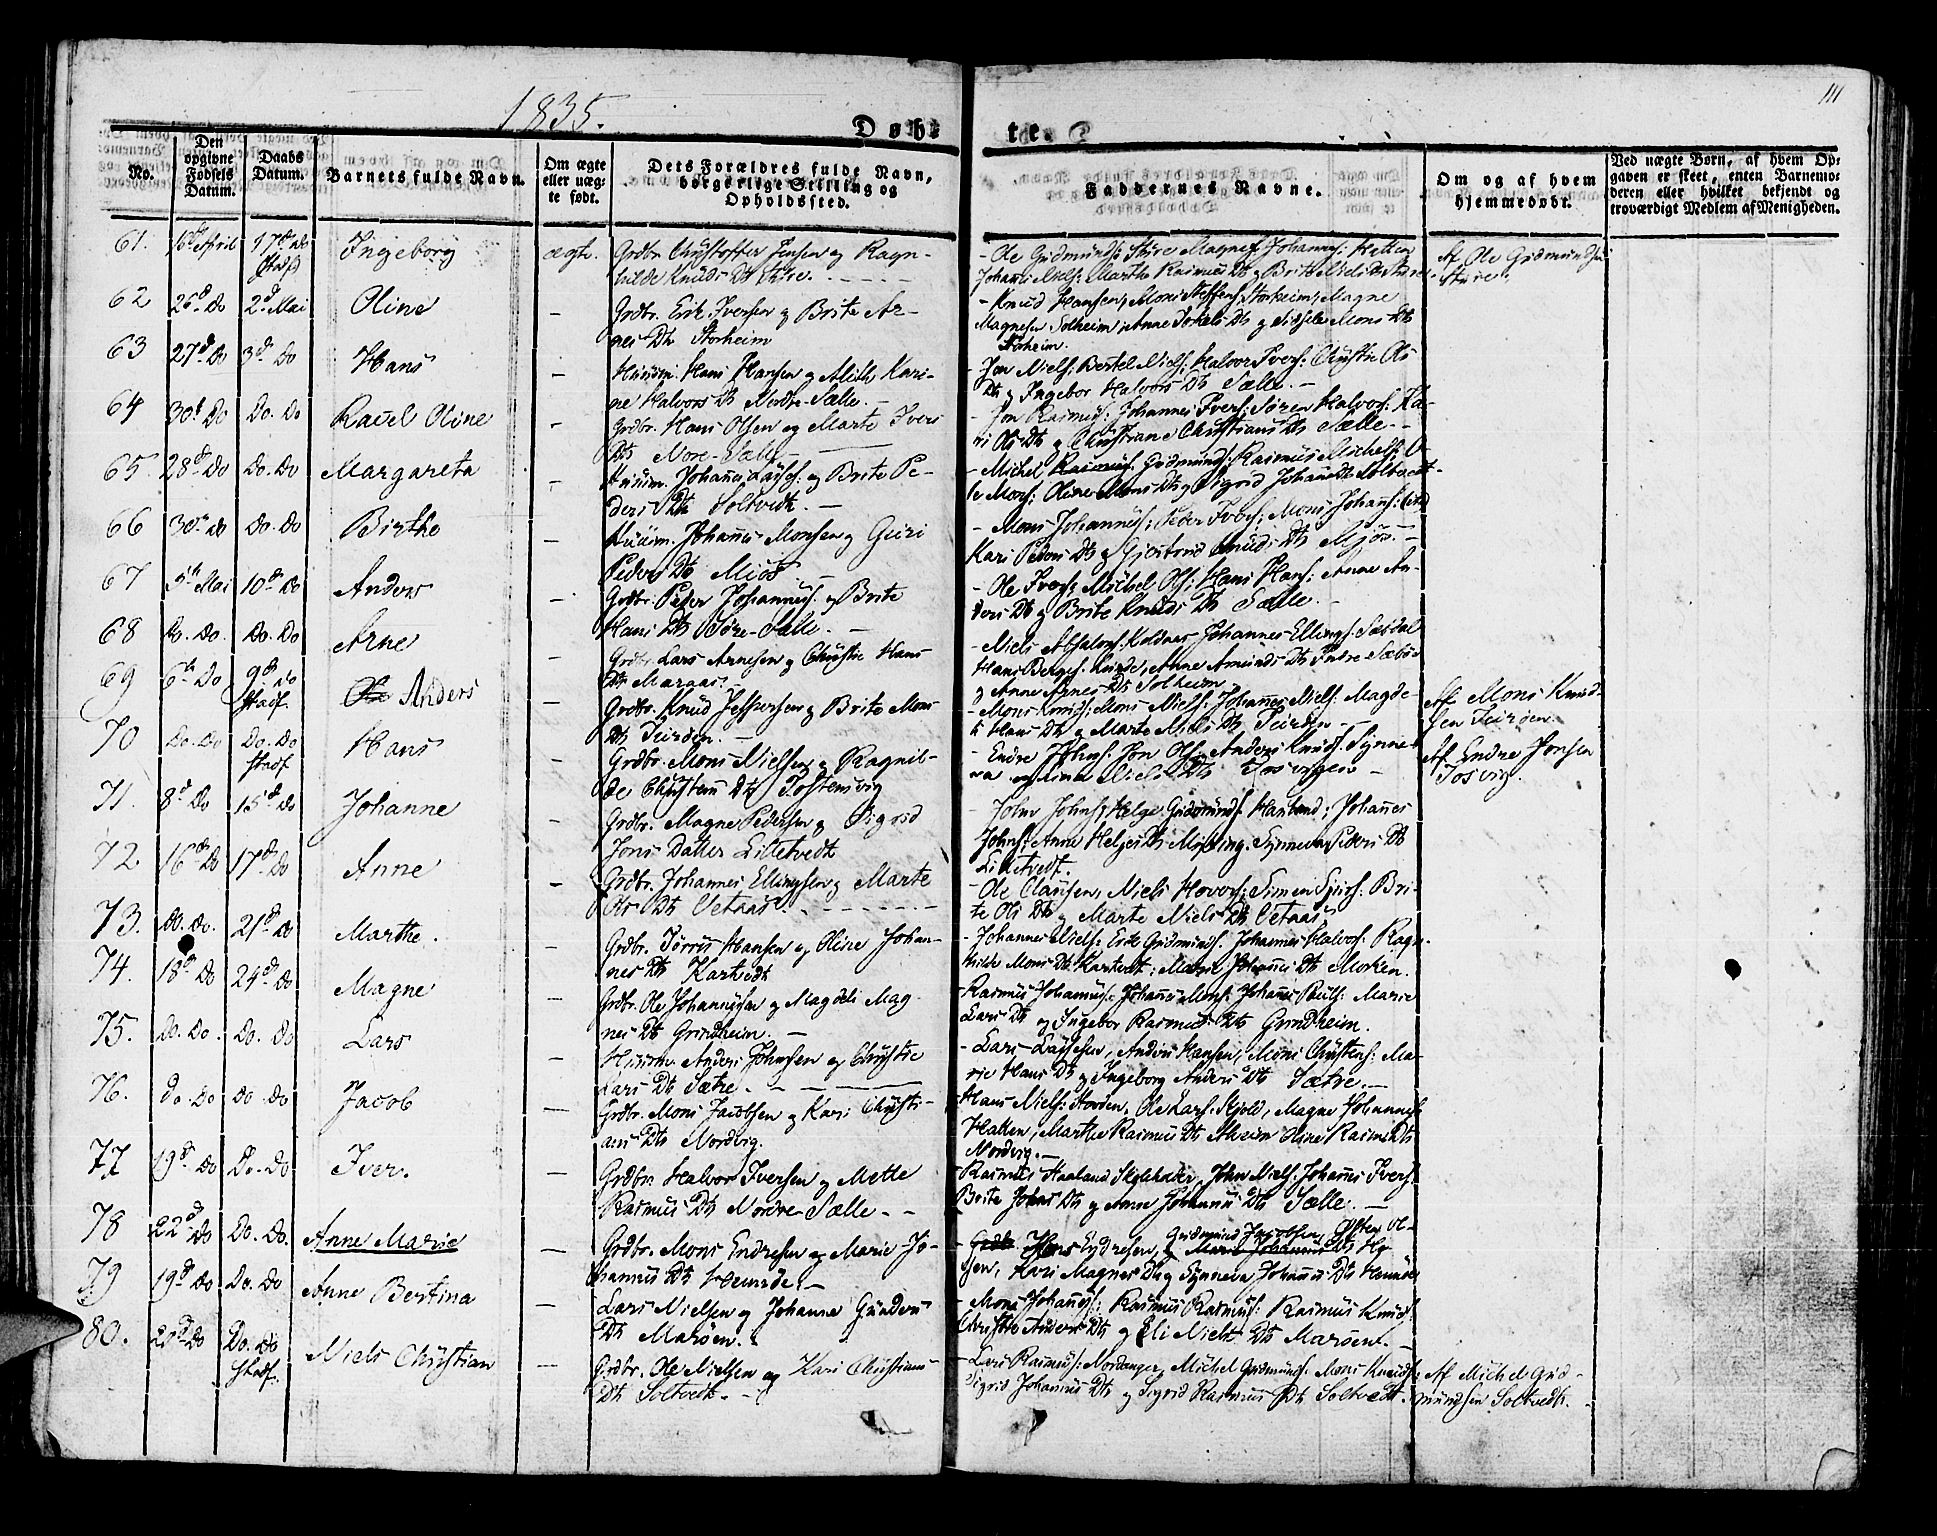 1835.
111
Døb-
te.
No.
Den opgivne Fødsels Datum.
Daabs Datum.
Barnets fulde Navn.
Om ægte eller uægte født.
Dets Forældres fulde Navn, borgerlige Stilling og Opholdssted.
Faddernes Navne.
Om og af hvem hjemmedøbt.
Ved uægte Børn, af hvem Opgaven er skeet, enten Barnemoderen eller hvilket bekjendt og troværdigt Medlem af Menigheden.
61. 16de April 17de Do Stadf. Ingeborg ægte.
Grdbr. Christoffer Jensen og Ragn-
hilde Knuds Dt Sture.
Ole Gudmunds: Sture Magne Johannes:
Af Ole Gudmunds
Sture.
62 26de Do 2d Mai Oline –
Grdbr. Erik Iversen og Brite Ar-
nes Dt Storheim
– Knud Hansen, Mons Steffens: Storheim, Magne
Magnesen Solheim, Anne Torkels Dt og Mons Dt
Storheim.
63 27de Do 3d Do Hans –
Huusm. Hans Hansen og Alith Kari-
ne Halvors Dt Nedre-Sælle. –
Jon Niels: Bertel Niels: Halvor Ivers: Christie Ols
Dt og Ingebor Halvors Dt Sælle. –
64 30d Do Do. Do Rael Oline –
Grdbr. Hans Olsen og Marte Ivers
Dt Nore-Sælle
– Jon Rasmus: Johannes Ivers: Søren Halvors: Ka-
ri Ols Dt og Christiane Christians Dt Sælle. –
65. 28de Do Do. Do Margareta –
Huusm. Johannes Lasse: og Brite Pe-
ders Dt Soltvedt. –
– Michel Rasmus: Gudmunds: Rasmus Michels: O-
le Mons: Oline Mons Dt og Sigrid Johannes Dt Soltvedt
66 30te do Do. Do Birthe –
Huusm. Johannes Monsen og Guri
Peders Dt Miøs –
– Mons Johannes: Peder Ivers: Mons Johans:
Kari Peders Dt og Gjertrud Knuds Dt Mjøs. –
67 5te Mai 10de Do Anders –
Grdbr. Peder Johannes: og Brite
Hans Dt Søre-Sælle. –
– Ole Ivers: Michel Ols: Hans Hans: Anne An-
ders Dt og Brite Knuds Dt Sælle. –
68 Do. Do. Do. Do Arne –
Grdbr. Lars Arnesen og Christie Hans
Dt Maraas. –
– Niels Absalons: Johannes Ellings:
Hans Berges: Anne Amunds Dt Indre Sæbø
og Anne Arnes Dt Solheim
69 6te Do 9de do Stadf. Ole Anders –
Grdbr. Knud Jespersen og Brite Mons
Dt Feirøen. –
– Mons Knuds: Mons Niels: Johannes Niels: Magde-
li Hans Dt og Marte Niels Dt Feirøen –
Af Mons Knud-
sen Feirøen.
70 Do. Do Do. Do Stadf Hans –
Grdbr. Mons Nielsen og Ragnil-
de Christens Dt Tostensvig
– Endre Johns: Jon Ols: Anders Knuds: Synne-
va og Anna Niels Dt –
Af Endre Jonsen
71. 8d Do 15de do Johanne –
Grdbr. Magne Pedersen og Sigrid
Jons Datter Lilletvedt
– John Johns: Helge Gudmunds: Hanland; Johannes
Johns: Anne Helges Dt Synneva Peders Dt
Lilletvedt.
72 16de Do 17de Do Anne –
Grdbr. Johannes Ellingsen og Marte
Ols Dt Vetaas.
– Ole Clausen, Niels Hovors: Simen Siurs: Bri-
te Ols Dt og Marte Niels Dt Vetaas.
73. Do. Do. 21de Do Marthe. –
Grdbr. Tørris Hansen og Oline Johan-
nes Dt Kartvedt
– Johannes Niels: Erik Gudmunds: Johannes Halvors: Ragn-
hilde Mons Dt Kartvedt; Marie Johannes Dt Morken.
74. 18de Do 24de Do Magne –
Grdbr. Ole Johannesen og Magdeli Mag-
nes Dt Grindheim. –
– Rasmus Johannes: Johannes Mons: Johannes Pauls: Marie
Lars Dt og Ingebor Rasmus Dt Grindheim.
75. Do. Do. Do. Do Lars –
Huusm. Anders Johnsen og Christie
Lars Dt Sætre. –
– Lars Lassesen, Anders Hansen, Mons Christens: Ma-
rie Hans Dt og Ingeborg Anders Dt Sætre. –
76. do Do do do Jacob –
Grdbr. Mons Jacobsen og Kari Christi-
ans Dt Nordvig.
Hans Niels: Ole Lars: Skjold, Magne Johannes:
Hatten, Marthe Rasmus Dt Oline Rasmus Dt
Nordvig. –
77 19de Do Do. Do Iver. –
Grdbr. Halvor Iversen og Mette
Rasmus Dt Nordre-Sælle – –
Rasmus Haaland Skoleholder, John Niels: Johannes Ivers:
Brite Johans Dt og Anne Johannes Dt Sælle. –
78 22de Do Do. Do. Anne Marie –
Grdbr. Mons Endresen og Marie Jo-
hannes Dt –
Grdbr. Hans Eydesen, Gudmund Jacobsen, Østen Ol-
sen, Kari Magnes Dt og Synneva Johannes Dt
79 19de Do Do. Do Anne Bertina –
Lars Nielsen og Johanne Gunders
Dt Marøen.
– Mons Johannes: Rasmus Rasmus: Rasmus Knuds:
Christie Anders Dt og Eli Niels Dt Marøen. –
80. 20de Do Do. Do Stadf. Niels Christian –
Grdbr. Ole Nielsen og Kari Christians
Dt Soltvedt. –
– Lars Rasmus: Nordanger, Michel Gudmunds: Mons Knuds:
Sigrid Johannes Dt og Sigrid Rasmus Dt Soltvedt.
Af Michel Gud-
mundsen Soltvedt. –